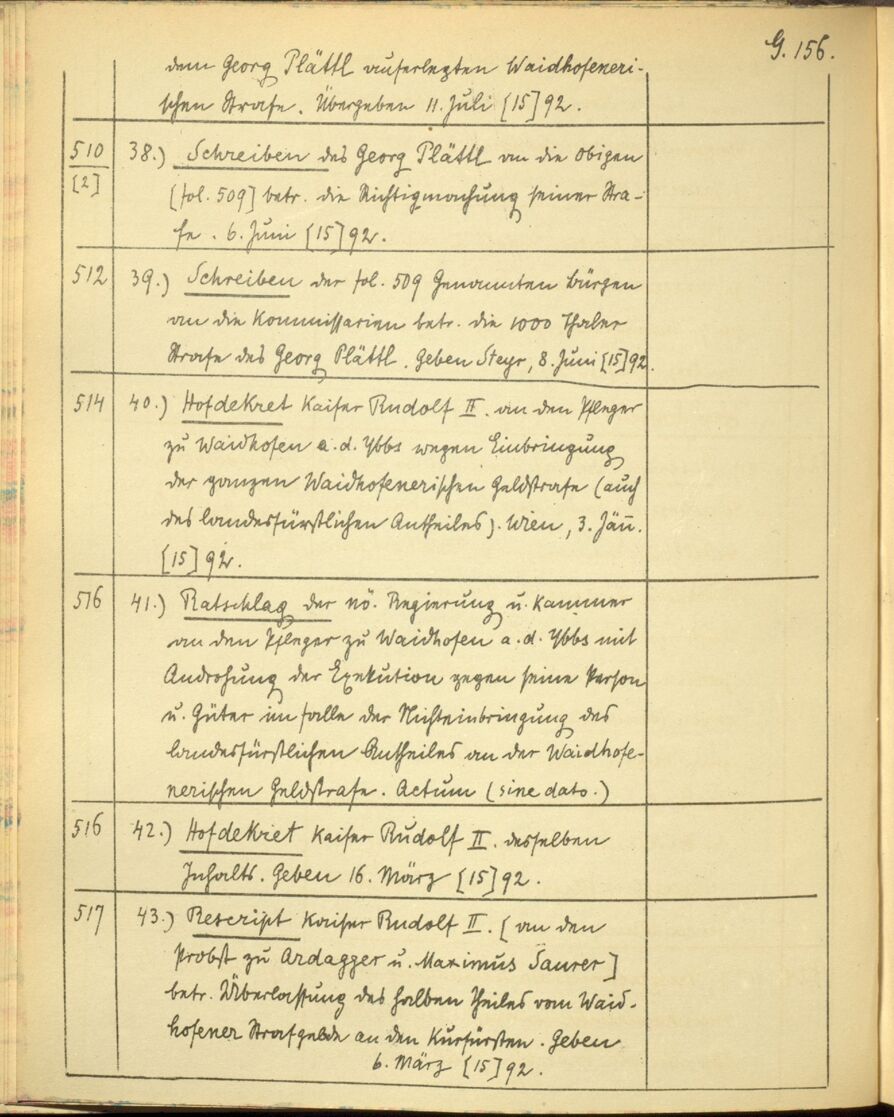 G. 156.
dem Georg Plättl auferlegten Waidhofeneri-
schen Strafe. Übergeben 11. Juli [15]92.
510 38.) Schreiben des Georg Plättl an die obigen
[2] [fol. 509] betr. die Richtigmachung seiner Stra-
fe. 6. Juni [15]92.
512 39.) Schreiben der fol. 509 Genannten Bürgen
an die Kommissarien betr. die 1000 Thaler
Strafe des Georg Plättl. Geben Steyr, 8. Juni [15]92.
514 40.) Hofdekret Kaiser Rudolf II. an den Pfleger
zu Waidhofen a. d. Ybbs wegen Einbringung
der ganzen Waidhofenerischen Geldstrafe (auch
des landesfürstlichen Antheiles). Wien, 3. Jän̄.
[15]92.
516 41.) Ratschlag der nö. Regierung u. Kammer
an den Pfleger zu Waidhofen a. d. Ybbs mit
Androhung der Exekution gegen seine Person
u. Güter im Falle der Nichteinbringung des
landesfürstlichen Antheiles an der Waidhofe-
nerischen Geldstrafe. Actum (sine dato.)
516 42.) Hofdekret Kaiser Rudolf II. desselben
Inhalts. Geben 16. März [15]92.
517 43.) Rescript Kaiser Rudolf II. [an den
Probst zu Ardagger u. Maximus Saurer]
betr. Überlassung des halben Theiles vom Waid-
hofener Strafgelde an den Kurfürsten. Geben
6. März [15]92.